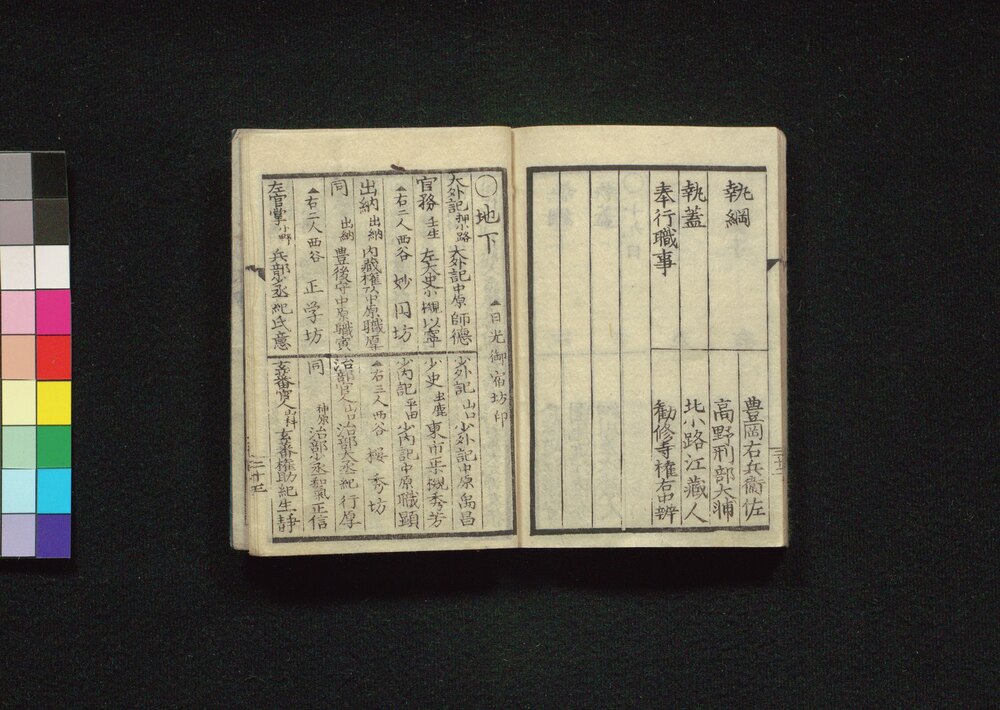 執綱
豊岡右兵衛佐
高野刑部大輔
執蓋
北小路江蔵人
奉行職事
勧修寺権右中辨
〇地下
▲日光御宿坊印
大外記 押小路 大外記中原師徳
官務 壬生 左大史小槻以寧
▲右二人西谷 妙円坊
出納 出納 内蔵権頭中原職厚
同 出納 豊後守中原職寅
▲右二人西谷 正学坊
左官掌 小野 兵部少丞紀氏意
少外記 山口 少外記中原昌
少史 東市正槻秀芳
少内記 平田 少内記中原職顕
▲右三人西谷 桜秀坊
治部官人 山口 治部大丞紀行厚
同 神原 治部少丞和氣正信
玄蕃官人 山科 玄蕃権助紀生静
二十五